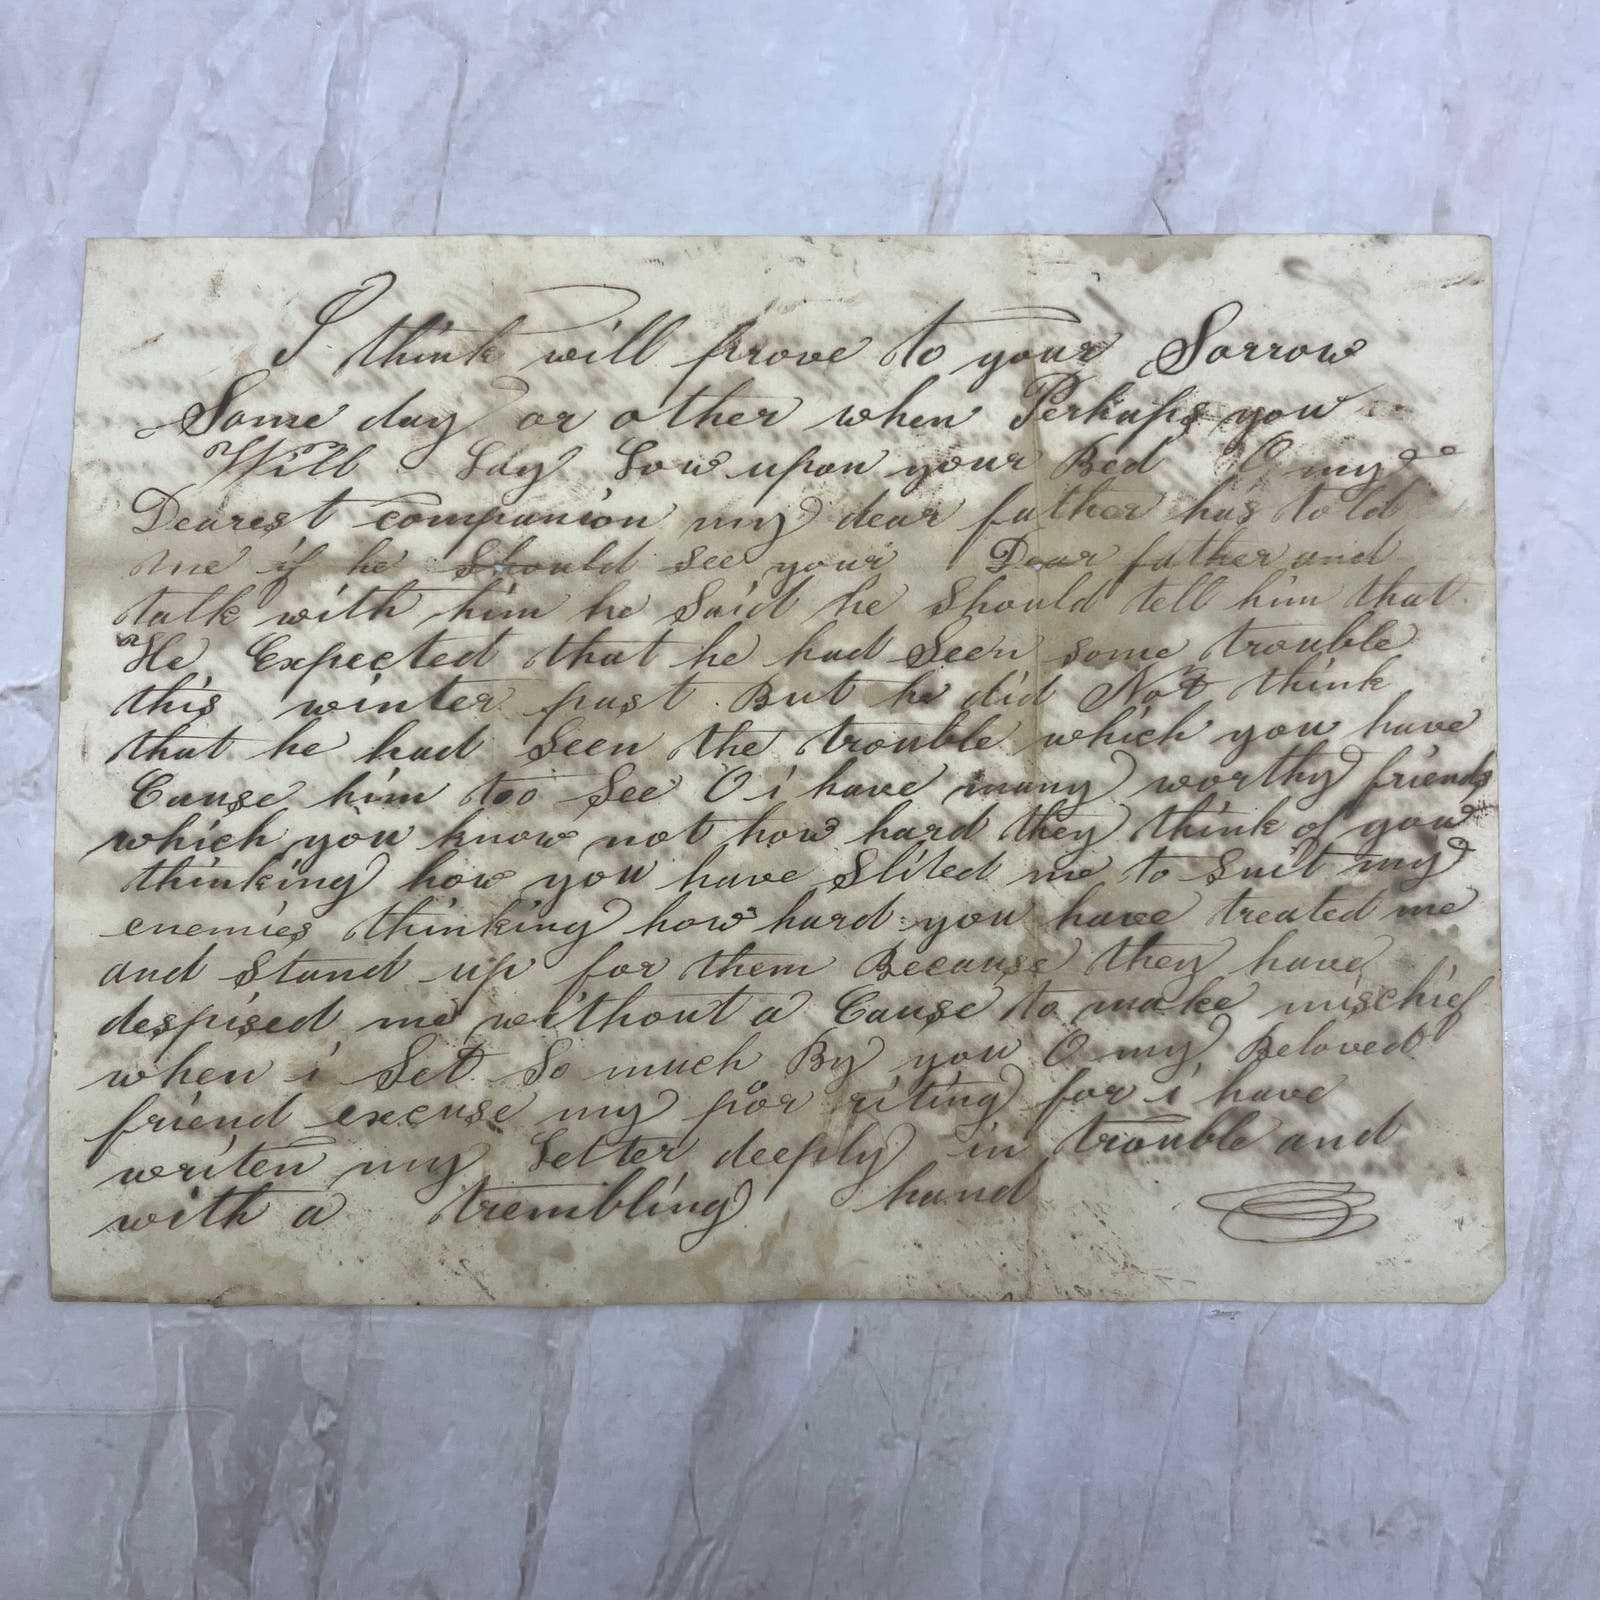 I think will prove to your Sorrow
Some day or other when Perhaps you
Will Lay Low upon your Bed O my
Dearest companion my dear father has told
me if he Should see your Dear father and
talk with him he Said he Should tell him that
He Expected that he had Seen some trouble
this winter past But he did Not think
that he had Seen the trouble which you have
Cause him too See O i have many worthy friends
which you know not how hard they think of you
thinking how you have Slited me to Suit my
enemies thinking how hard you have treated me
and Stand up for them Because they have
despised me without a Cause to make mischief
when i Set So much By you O my Beloved
friend excuse my poor riting for i have
writen my Letter deeply in trouble and
with a trembling hand